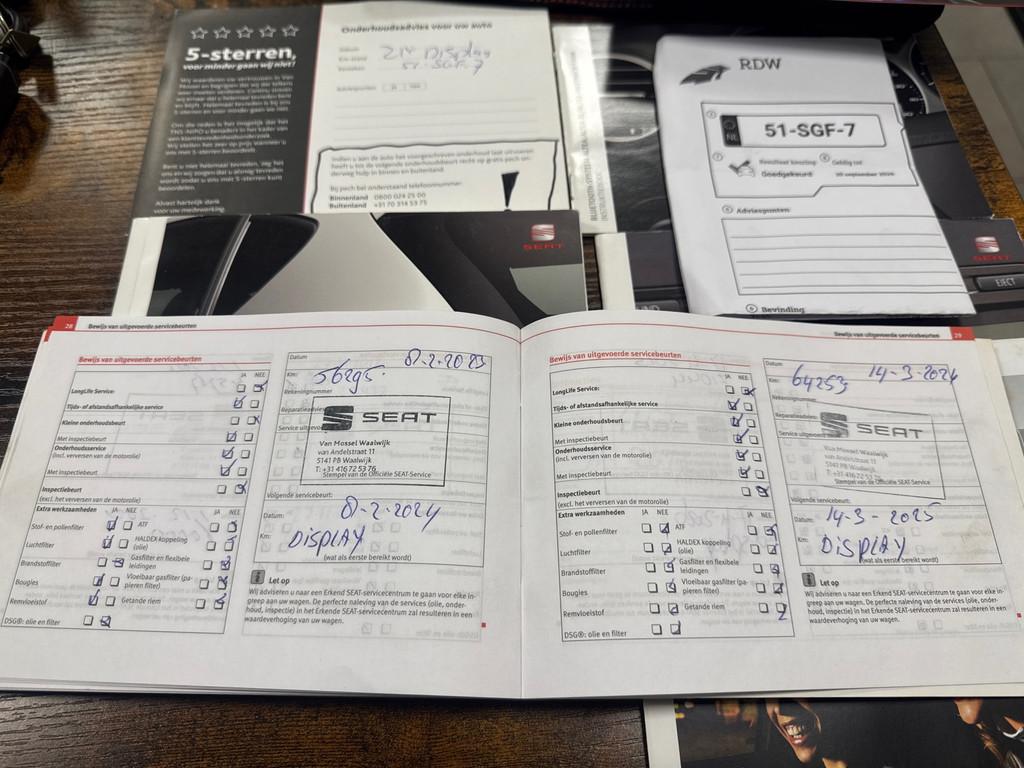 5-sterren,
voor minder gaan wij niet!
Alvast hartelijk dank
voor uw medewerking.
Onderhoudsadvies voor uw auto
Datum
Km-stand
Kenteken
ZIN Display
51-SGF-7
Adviespunten
Indien u aan de auto het voorgeschreven onderhoud laat uitvoeren
heeft u tot de volgende onderhoudsbeurt recht op gratis pech on-
derweg hulp in binnen en buitenland.
Bij pech bel onderstand telefoonnummer:
Binnenland 0800 024 25 00
Buitenland +31 70 314 53 75
!
RDW
NL
51-SGF-7
Resultaat keuring
Goedgekeurd
Geldig tot
Adviespunten
Bevinding
SEAT
SEAT
EJECT
28 Bewijs van uitgevoerde servicebeurten
Bewijs van uitgevoerde servicebeurten
JA NEE
LongLife Service:
Tijds- of afstandsafhankelijke service
Kleine onderhoudsbeurt
Met inspectiebeurt
Onderhoudsservice
(incl. verversen van de motorolie)
Met inspectiebeurt
Inspectiebeurt
(excl. het verversen van de motorolie)
Extra werkzaamheden JA NEE JA NEE
Stof- en pollenfilter ATF
Luchtfilter HALDEX koppeling
(olie)
Brandstoffilter Gasfilter en flexibele
leidingen
Bougies Vloeibaar gasfilter (pa-
pieren filter)
Remvloeistof Getande riem
DSG®: olie en filter
Datum 8-2-2023
Km: 56295.
Rekeningnummer
Reparatieadvies
Service uitgevoerd
SEAT
Van Mossel Waalwijk
van Andelstraat 11
5141 PB Waalwijk
T: +31 416 72 53 76
Stempel van de Officiële SEAT-Service
Volgende servicebeurt:
Datum: 8-2-2024
Km: DISPLAY
(wat als eerste bereikt wordt)
Let op
Wij adviseren u naar een Erkend SEAT-servicecentrum te gaan voor elke in-
greep aan uw wagen. De perfecte naleving van de services (olie, onder-
houd, inspectie) in het Erkende SEAT-servicecentrum zal resulteren in een
waardeverhoging van uw wagen.
Bewijs van uitgevoerde servicebeurten 29
Bewijs van uitgevoerde servicebeurten
JA NEE
LongLife Service:
Tijds- of afstandsafhankelijke service
Kleine onderhoudsbeurt
Met inspectiebeurt
Onderhoudsservice
(incl. verversen van de motorolie)
Met inspectiebeurt
Inspectiebeurt
(excl. het verversen van de motorolie)
Extra werkzaamheden JA NEE JA NEE
Stof- en pollenfilter ATF
Luchtfilter HALDEX koppeling
(olie)
Brandstoffilter Gasfilter en flexibele
leidingen
Bougies Vloeibaar gasfilter (pa-
pieren filter)
Remvloeistof Getande riem
DSG®: olie en filter
Datum 14-3-2024
Km: 64253
Rekeningnummer
Reparatieadvies
Service uitgevoerd
SEAT
Van Mossel Waalwijk
van Andelstraat 11
5141 PB Waalwijk
T: +31 416 72 53 76
Stempel van de Officiële SEAT-Service
Volgende servicebeurt:
Datum: 14-3-2025
Km: DISPLAY
(wat als eerste bereikt wordt)
Let op
Wij adviseren u naar een Erkend SEAT-servicecentrum te gaan voor elke in-
greep aan uw wagen. De perfecte naleving van de services (olie, onder-
houd, inspectie) in het Erkende SEAT-servicecentrum zal resulteren in een
waardeverhoging van uw wagen.